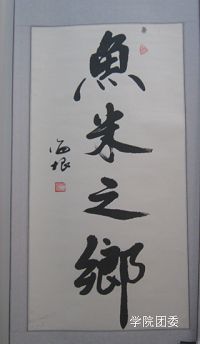 魚米之鄉
学院团委